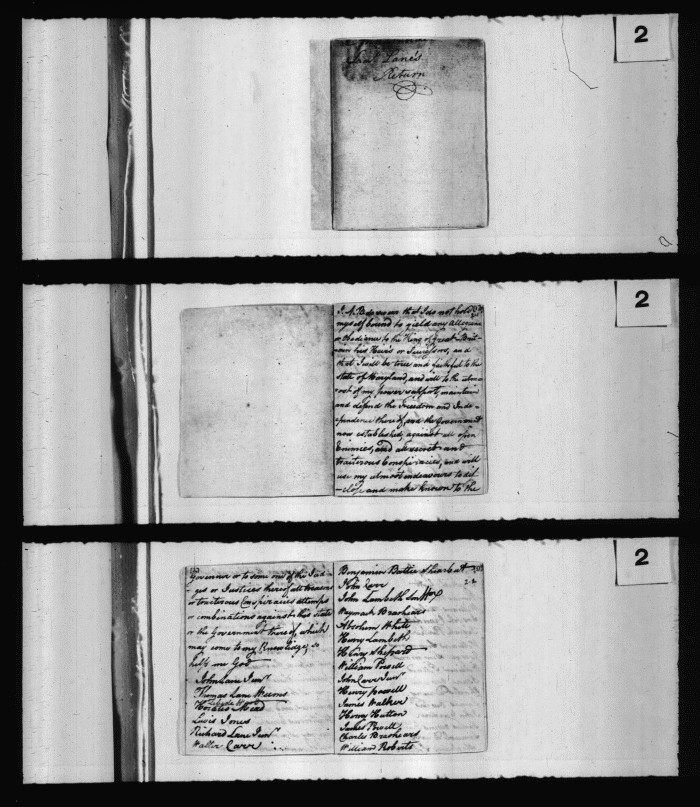 2
Lane's
Return
2
I, A.B. do swear that I do not hold
myself bound to yield any Allegiance
or Obedience to the King of Great Brit-
ain his Heirs or Successors, and
that I will be true and faithful to the
State of Maryland, and will to the utmo-
-st of my power support, maintain
and defend the Freedom and Inde-
-pendence thereof, and the Government
now established, against all open
Enemies, and all secret and
traiterous Conspiracies, and will
use my utmost endeavours to dis-
-close and make known to the
2
Governor or to some one of the Jud-
-ges or Justices thereof, all treasons
or traitorous Conspiracies attempts
or combinations against this State
or the Government thereof, which
may come to my Knowledge, so
help me God
John Lane Junr
Thomas Lane
Horatio
Lewis Jones
Richard Lane Junr
Walter Carr
Benjamin
John Carr
John Lambeth
Waymack Brashears
Abraham White
Henry Lambeth
Henry Shepard
William Powell
John Carr Junr
Henry Powell
James Walker
Henry Hutton
James Powell
Charles Brashears
William Roberts